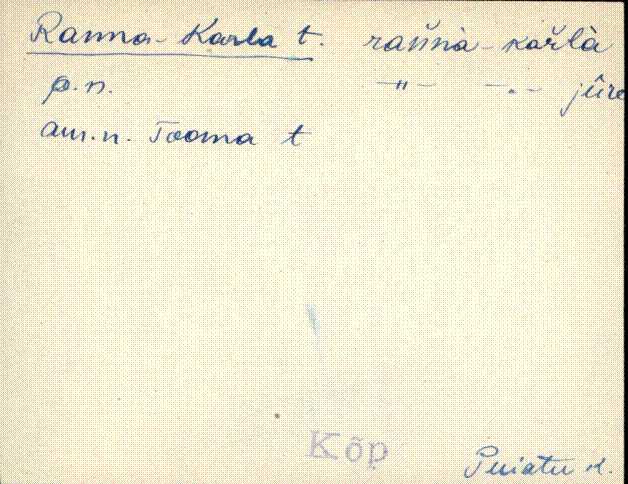 Ranna-Karla t. rañnà-kařlà
p.n. —"— —.— jüre
am.n. Tooma t
Kõp
Puiatu k.